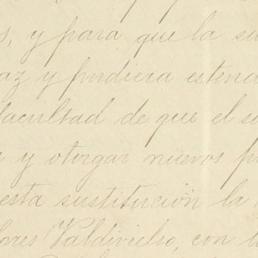 s, y para que la su
az y pudiera esten
facultad de que el s
y otorgar nuevos p
esta sustitución la
ores Valdivielso, con